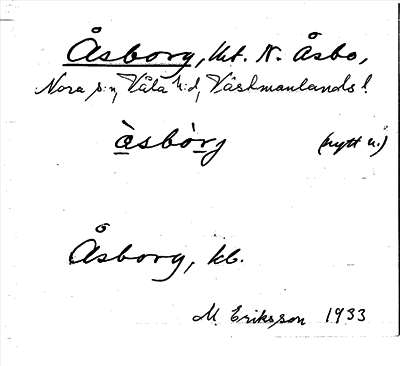 Åsborg, lht. N. Åsbo,
Nora s:n, Våla h:d, Västmanlands l.
åsbòrg (nytt u.)
Åsborg, kb.
M. Eriksson 1933